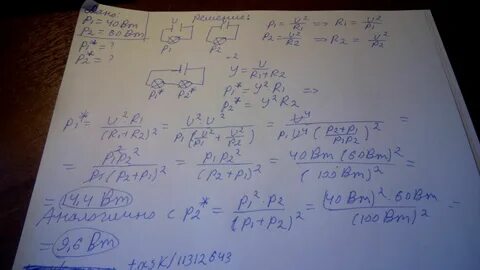 Дано:
P₁ = 40 Вт
P₂ = 60 Вт
P₁* = ?
P₂* = ?
Решение:
U
P₁
U
P₂
P₁ = U²/R₁ => R₁ = U²/P₁
P₂ = U²/R₂ => R₂ = U²/P₂
P₁* P₂*
У = U/(R₁+R₂)
P₁* = У²R₁ =>
P₂* = У²R₂
P₁* = U²R₁/(R₁+R₂)² = U²U²/P₁(U²/P₁ + U²/P₂)² = U⁴/P₁U⁴((P₂+P₁)/P₁P₂)² =
= P₁²P₂²/P₁(P₂+P₁)² = P₁P₂²/(P₂+P₁)² = 40 Вт (60 Вт)²/(100 Вт)² =
= 14,4 Вт
Аналогично с P₂* = P₁²·P₂/(P₁+P₂)² = (40 Вт)²·60 Вт/(100 Вт)² =
= 9,6 Вт